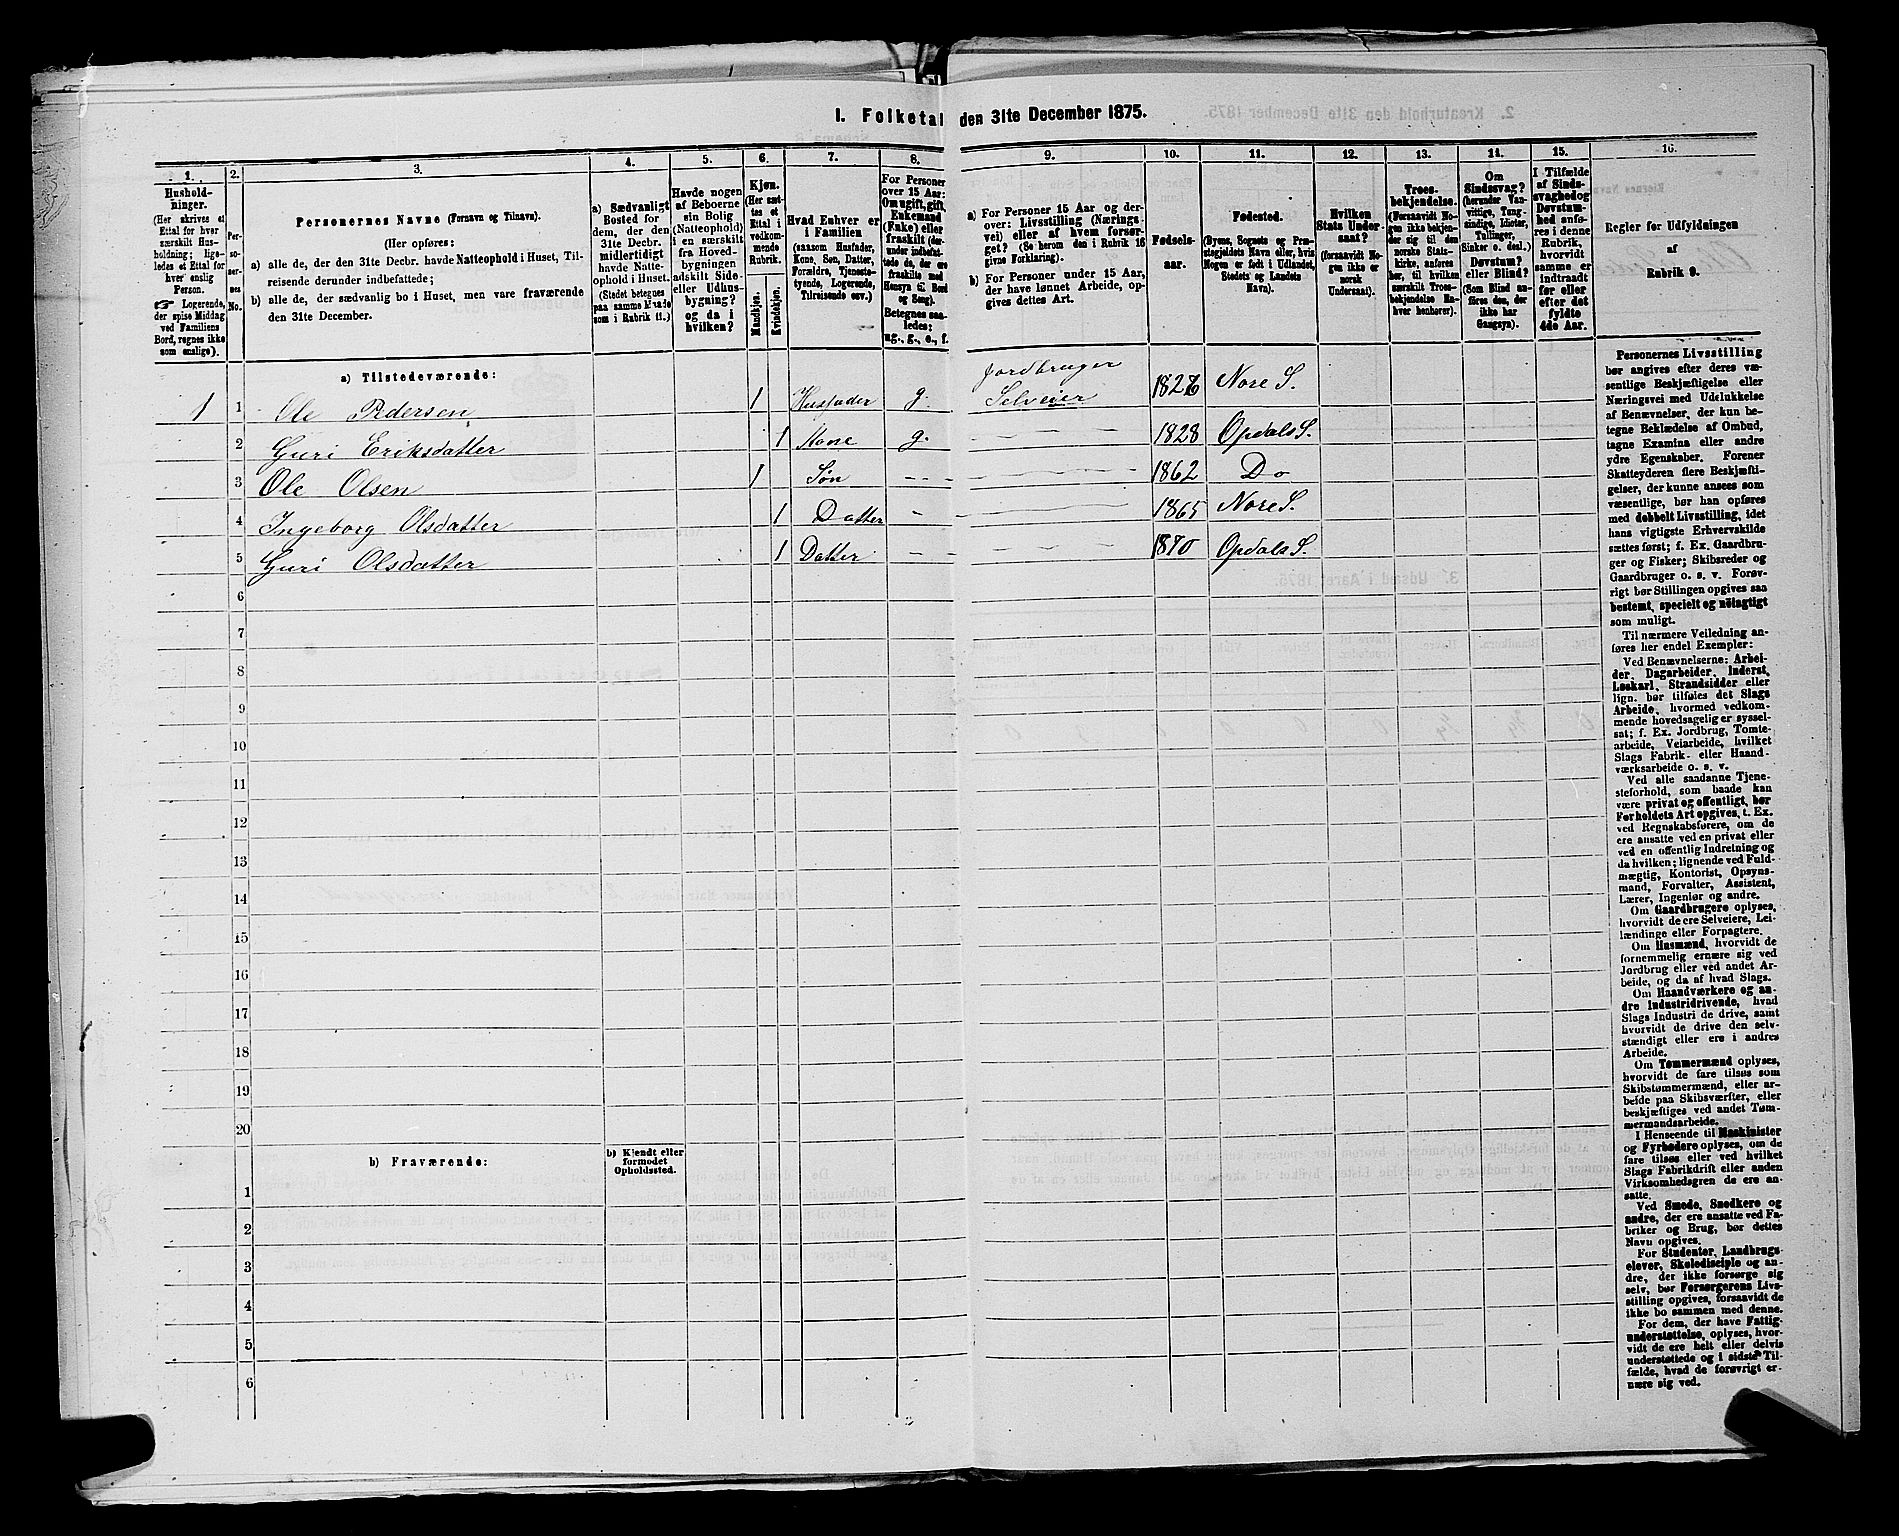 I. Folketal den 31te December 1875.
1.
Husholdninger.
(Her skrives et
Ettal for hver
særskilt Husholdning;
ligeledes et Ettal for
hver enslig
Person.
☞ Logerende,
der spise Middag
ved Familiens
Bord, regnes ikke
som enslige).
2.
Personernes
No.
3.
Personernes Navne (Fornavn og Tilnavn).
(Her opføres:
a) alle de, der den 31te Decbr. havde Natteophold i Huset, Tilreisende derunder indbefattede;
b) alle de, der sædvanlig bo i Huset, men vare fraværende
den 31te December.
4.
a) Sædvanligt
Bosted for
dem, der den
31te Decbr.
midlertidigt
havde Natteophold i Huset.
(Stedet betegnes
paa samme Maade
som i Rubrik 11.)
5.
Havde nogen
af Beboerne
sin Bolig
(Natteophold)
i en særskilt
fra Hovedbygningen
adskilt Side-
eller Udhusbygning?
og da i
hvilken?
6.
Kjøn.
(Her sættes et
Ettal i
vedkommende
Rubrik.
Mandkjøn.
Kvindekjøn.
7.
Hvad Enhver er
i Familien
(saasom Husfader,
Kone, Søn, Datter,
Forældre, Tjenestetyende, Logerende,
Tilreisende osv.)
8.
For Personer
over 15 Aar:
Om ugift, gift,
Enkemand
(Enke) eller
fraskilt
Betegnes saaledes:
ug., g., e., f.
9.
a) For Personer 15 Aar og derover: Livsstilling (Næringsvei) eller af hvem forsørget? (Se herom den i Rubrik 16
givne Forklaring).
b) For Personer under 15 Aar,
der have lønnet Arbeide, opgives dettes Art.
10.
Fødsels-
aar.
11.
Fødested.
(Byens, Sognets og Præstegjeldets Navn eller, hvis
Nogen er født i Udlandet,
Stedets og Landets
Navn).
12.
Hvilken
Stats Undersaat?
(forsaavidt Nogen ikke er
norsk
Undersaat).
13.
Troesbekjendelse.
(Forsaavidt Nogen
ikke bekjender sig til den
norske Statskirke, anføres
her, til hvilken
særskilt Troesbekjendelse Enhver henhører).
14.
Om
Sindssvag?
(herunder Vanvittige, Tungsindige, Idioter,
Tullinger,
Sinker o. desl.)
Døvstum?
eller Blind?
(Som Blind anføres den, der
ikke har
Gangsyn).
15.
I Tilfælde
af Sindssvaghed og
Døvstumhed anføres i denne
Rubrik,
hvorvidt
samme er
indtraadt
før eller
efter det
fyldte
4de Aar.
16.
Regler for Udfyldningen
af
Rubrik 9.
a) Tilstedeværende:
1 1 Ole Pedersen 1 Husfader g. Jordbruger Selveier 1826 Nore S.
2 Guri Eriksdatter 1 Kone g. 1828 Opdals S.
3 Ole Olsen 1 Søn 1862 Do
4 Ingeborg Olsdatter 1 Datter 1865 Nore S.
5 Guri Olsdatter 1 Datter 1870 Opdals S.
6
7
8
9
10
11
12
13
14
15
16
17
18
19
20
b) Fraværende:
b) Kjendt eller
formodet
Opholdssted.
1
2
3
4
5
6
Personernes Livsstilling
bør angives efter deres væsentlige Beskjæftigelse eller
Næringsvei med Udelukkelse
af Benævnelser, der kun betegne Beklædelse af Ombud,
tagne Examina eller andre
ydre Egenskaber. Forener
Skatteyderen flere Beskjæftigelser, der kunne ansees som
væsentlige, bør han opføres
med dobbelt Livsstilling, idet
hans vigtigste Erhvervskilde
sættes først; f. Ex. Gaardbruger og Fisker; Skibsreder og
Gaardbruger o. s. v. Forøvrigt bør Stillingen opgives saa
bestemt, specielt og nøiagtigt
som muligt.
Til nærmere Veiledning anføres her endel Exempler:
Ved Benævnelserne: Arbeider, Dagarbeider, Inderst,
Løskarl, Strandsidder eller
lign. bør tilføies det Slags
Arbeide, hvormed vedkommende hovedsagelig er sysselsat; f. Ex. Jordbrug, Tomtearbeide, Veiarbeide, hvilket
Slags Fabrik- eller Haandværksarbeide o. s. v.
Ved alle saadanne Tjenesteforhold, som baade kan
være privat og offentligt, bør
Forholdets Art opgives, t. Ex.
ved Regnskabsførere, om de
ere ansatte ved en privat eller
ved en offentlig Indretning og
da hvilken; lignende ved Fuldmægtig, Kontorist, Opsynsmand, Forvalter, Assistent,
Lærer, Ingeniør og andre.
Om Gaardbrugere oplyses,
hvorvidt de ere Selveiere, Leilændinge eller Forpagtere.
Om Husmænd, hvorvidt de
fornemmelig ernære sig ved
Jordbrug eller ved andet Arbeide, og da af hvad Slags.
Om Haandværkere og andre Industridrivende, hvad
Slags Industri de drive, samt
hvorvidt de drive den selvstændigt eller ere i andres
Arbeide.
Om Tømmermænd oplyses,
hvorvidt de fare tilsøs som
Skibstømmermænd, eller arbeide paa Skibsværfter, eller
beskjæftiges ved andet Tømmermandsarbeide.
I Henseende til Maskinister
og Fyrbødere oplyses, om de
fare tilsøs eller ved hvilket
Slags Fabrikdrift eller anden
Virksomhedsgren de ere ansatte.
Ved Smede, Snedkere og
andre, der ere ansatte ved Fabriker og Brug, bør dettes
Navn opgives.
For Studenter, Landbrugselever, Skoledisciple og andre, der ikke forsørge sig
selv, bør Forsørgerens Livsstilling opgives, forsaavidt de
ikke bo sammen med denne.
For dem, der have Fattigunderstøttelse, oplyses, hvorvidt de ere helt eller delvis
understøttede og i sidste Tilfælde, hvad de forøvrigt ernære sig ved.